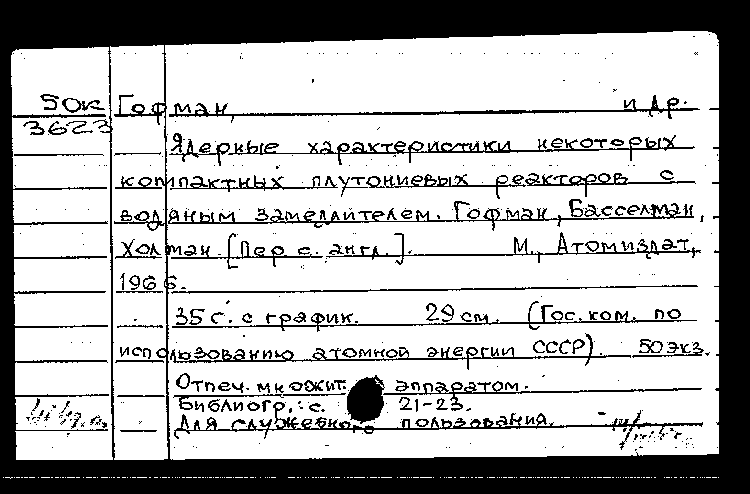 50к Гофман, и др.
3623
Ядерные характеристики некоторых
компактных плутониевых реакторов с
водяным замедлителем. Гофман, Бассел­ман,
Холман. [Пер с. англ.]. М., Атомиздат,
1966.
35 с. с график. 29 см. (Гос. ком. по
использованию атомной энергии СССР). 50 экз.
Отпеч. множит. аппаратом.
Библиогр.: с. 21-23.
Для служебного пользования.